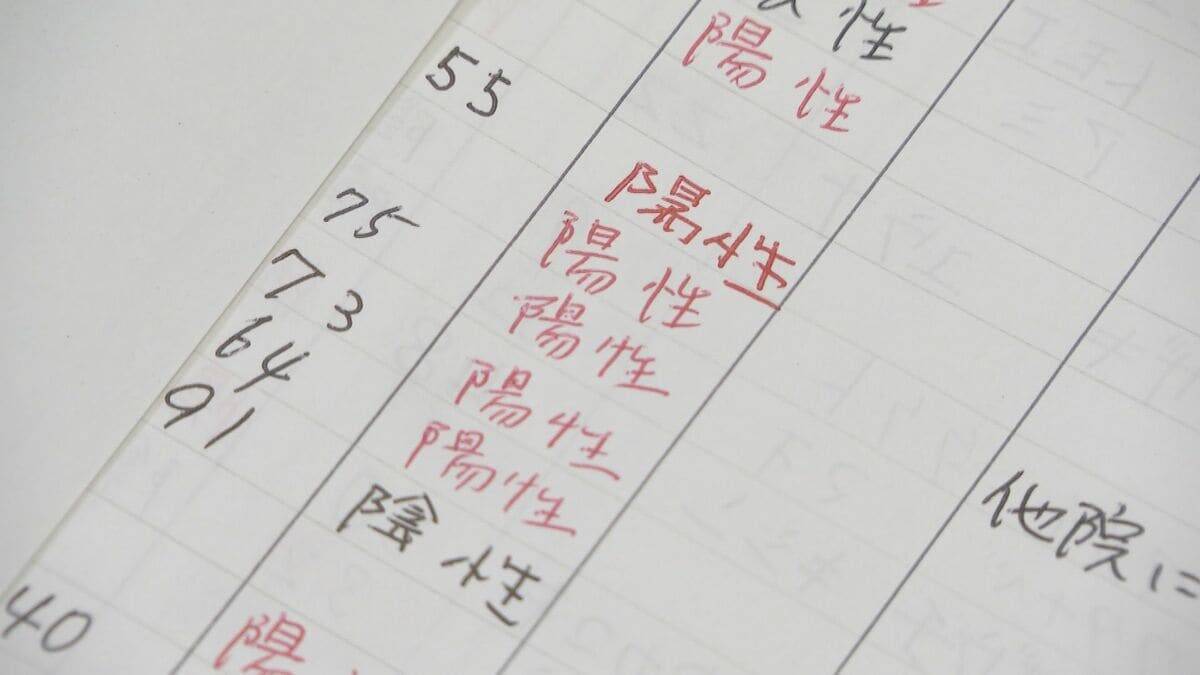 性
陽性
55 陽性
陽性
75 陽性 他院に
73 陽性
64 陽性
91 陰性
陽
40